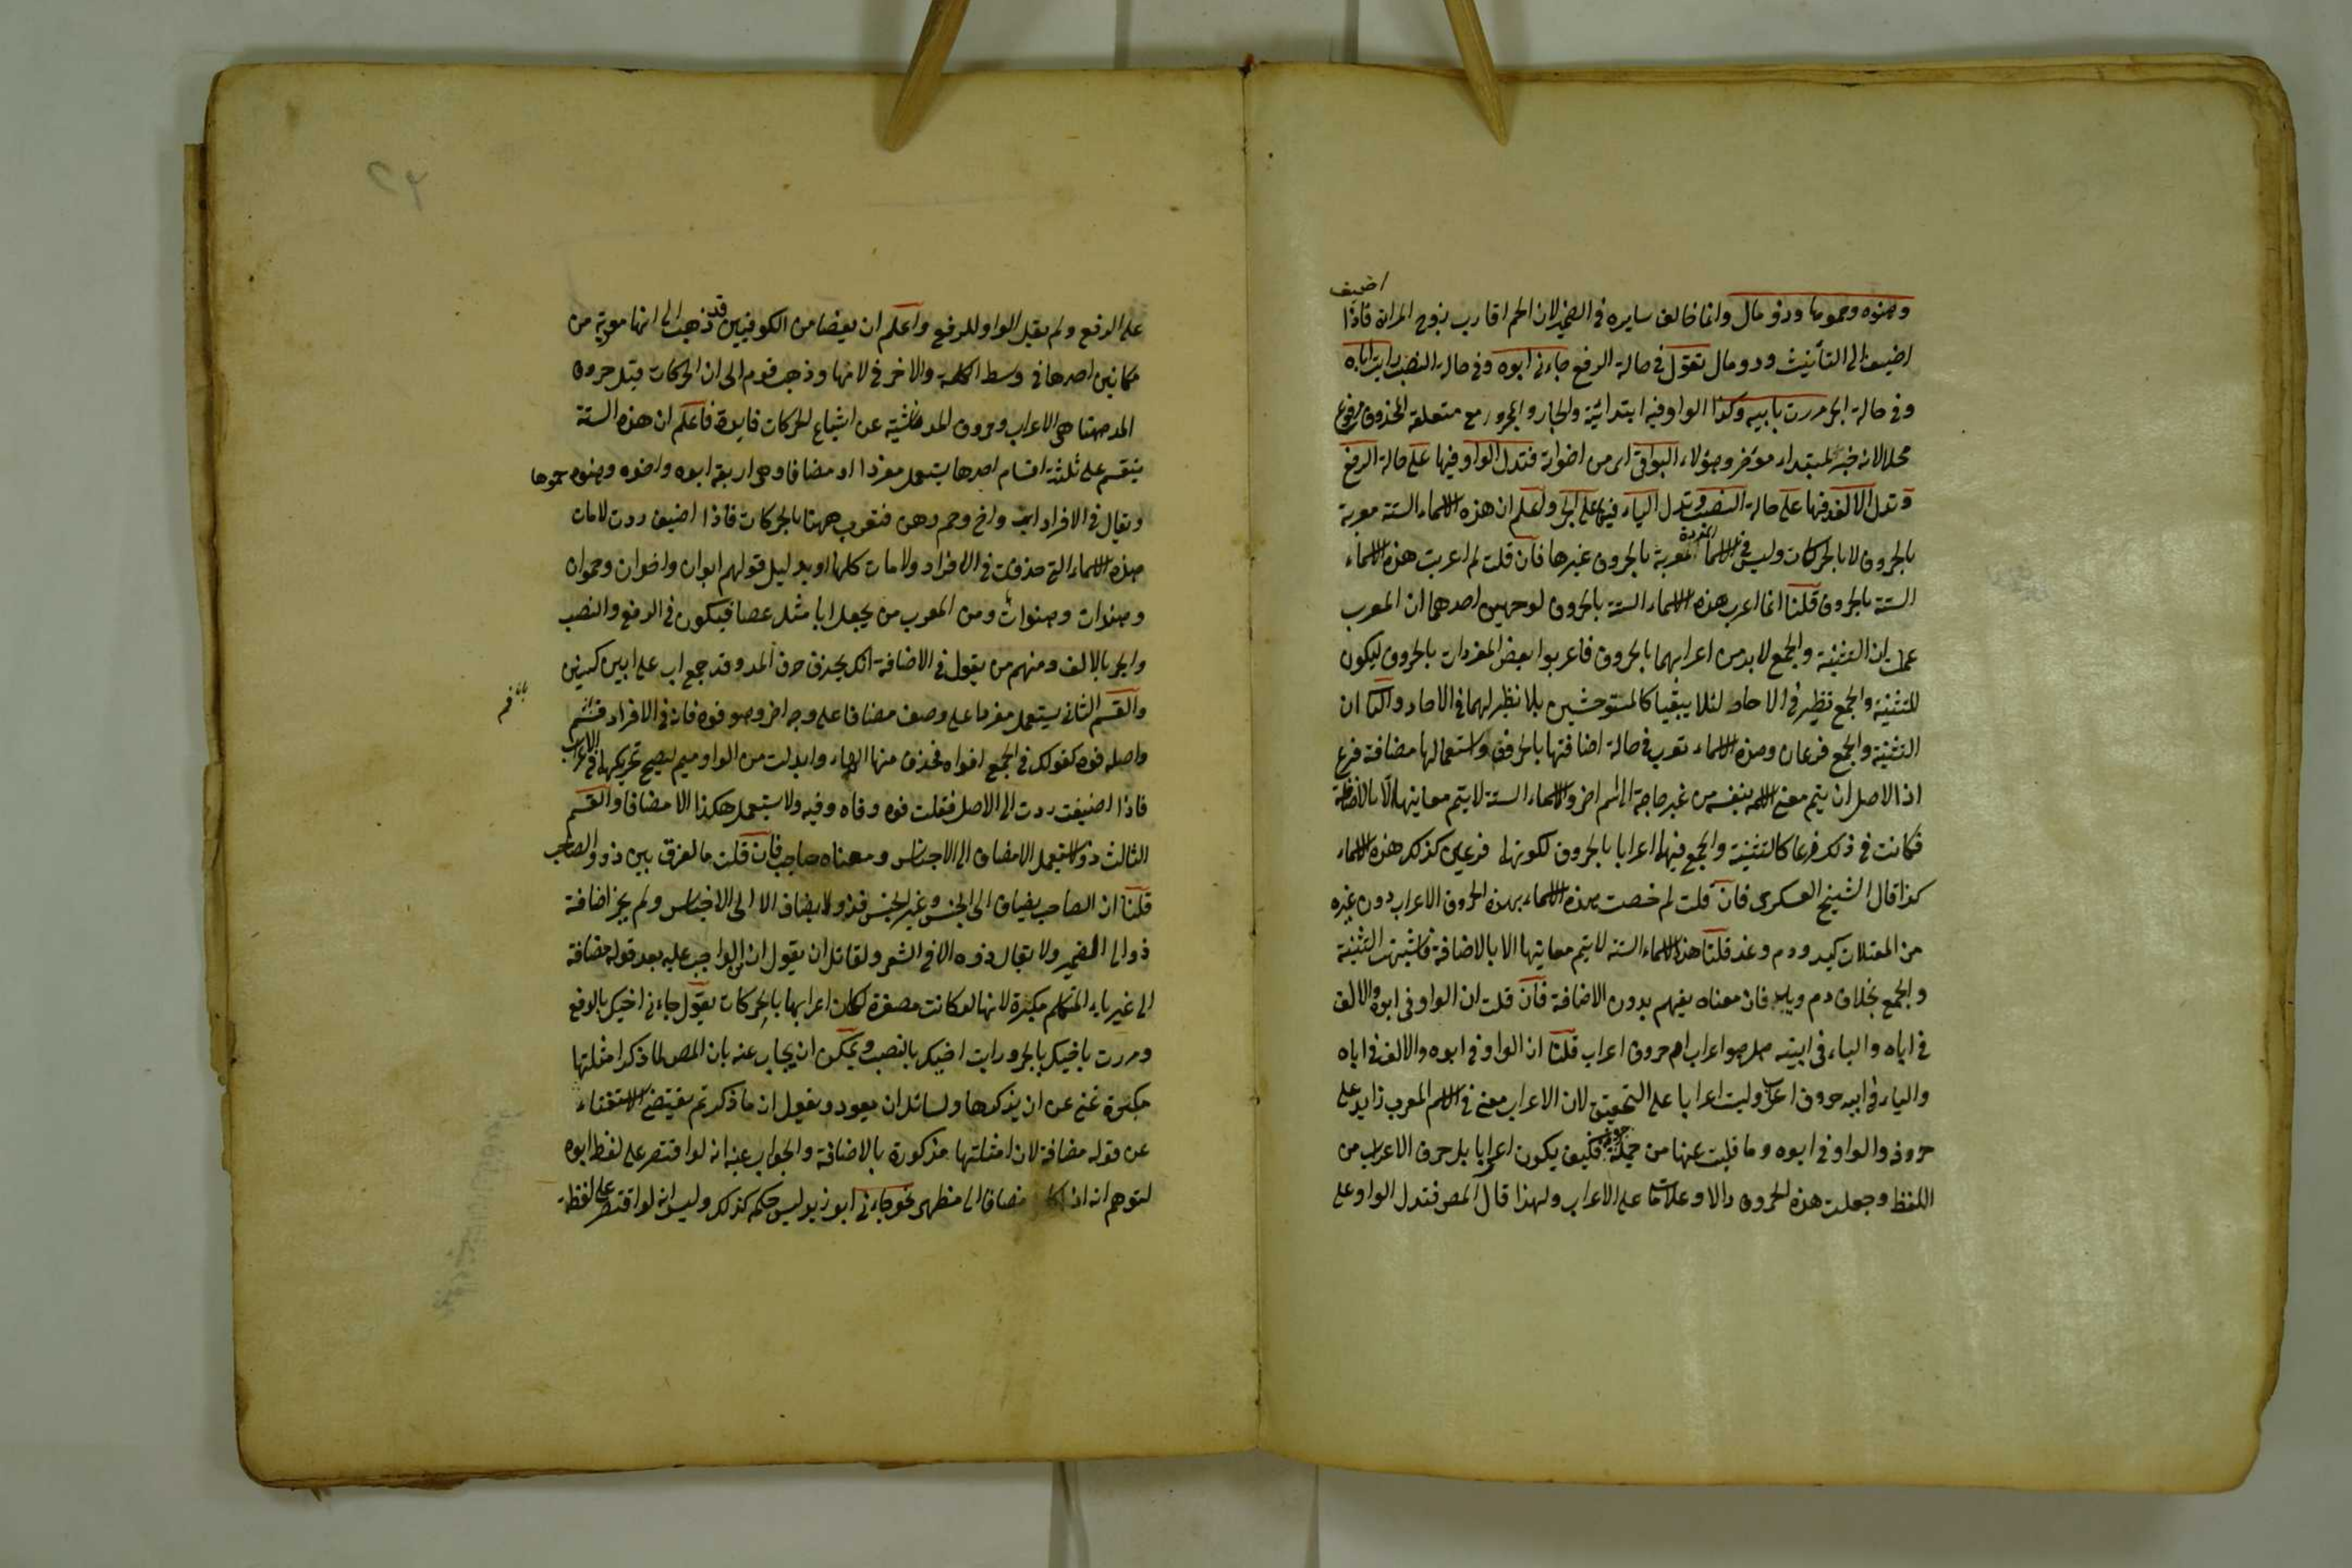 اضيف
وهنوه وحموها وذو مال وانما خالف سايره في الضمير لان الحم اقارب زوج المراة فاذا
اضيف الى التأنيث وذو مال تقول في حالة الرفع جاءني ابوه وفي حالة النصب رايت اباه
وفي حالة الجر مررت بابيه وكذا الواو فيه ابتدائية والجار والمجرور مع متعلقه المحذوف مرفوع
محلا لانه خبر لمبتداء مؤخر وهؤلاء البواقى اى من اخواته فتدل الواو فيها على حالة الرفع
وتدل الالف فيها على حالة النصب وتدل الياء فيها على الجر واعلم ان هذه الاسماء الستة معربة
بالحروف لا بالحركات وليس في الاسماء المفردة المعربة بالحروف غيرها فان قلت لم اعربت هذه الاسماء
الستة بالحروف قلنا انما اعرب هذه الاسماء الستة بالحروف لوجهين احدهما ان المعرب
علمت ان التثنية والجمع لا بد من اعرابهما بالحروف فاعربوا بعض المفردات بالحروف ليكون
للتثنية والجمع نظير في الاحاد لئلا يبقيا كالمستوحشين بلا نظير لهما في الاحاد والثانى ان
التثنية والجمع فرعان وهذه الاسماء تعرب في حالة اضافتها بالحروف واستعمالها مضافة فرع
اذ الاصل ان يتم معنى الاسم بنفسه من غير حاجة الى اسم اخر والاسماء الستة لا يتم معانيها الا بالاضافة
فكانت في ذلك فرعا كالتثنية والجمع فيهما اعرابا بالحروف لكونهما فرعين كذلك هذه الاسماء
كذا قال الشيخ العسكرى فان قلت لم خصت هذه الاسماء بهذه الحروف الاعراب دون غيره
من المعتلات كيد ودم وغد قلنا هذه الاسماء الستة لا يتم معانيها الا بالاضافة فاشبهت التثنية
والجمع بخلاف دم ويد فان معناه يفهم بدون الاضافة فان قلت ان الواو في ابوه والالف
في اباه والياء في ابيه هل هو اعراب ام حروف اعراب قلنا ان الواو في ابوه والالف في اباه
والياء في ابيه حروف اعراب وليست اعرابا على التحقيق لان الاعراب معنى في الاسم المعرب زايد على
حروفه والواو في ابوه وما قلبت عنها من جملة حروفه فكيف يكون اعرابا بل حرف الاعراب من
اللفظ وجعلت هذه الحروف دالا وعلامات على الاعراب ولهذا قال المص فتدل الواو على
على الرفع ولم يقل الواو للرفع واعلم ان بعضا من الكوفيين قد ذهب الى انها معربة من
مكانين احدهما في وسط الكلمة والاخر في لامها وذهب قوم الى ان الحركات قبل حروف
المد ههنا هى الاعراب وحروف المد ناشئة عن اشباع الحركات فايدة فاعلم ان هذه الستة
ينقسم على ثلثة اقسام احدها يستعمل مفردا او مضافا وهى اربعة ابوه واخوه وهنوه حموها
ويقال في الافراد اب واخ وحم وهن فتعرب ههنا بالحركات فاذا اضيف ردت لامات
هذه الاسماء التى حذفت في الافراد ولامات كلها واو بدليل قولهم ابوان واخوان وحموان
وهنوان وهنوات ومن العرب من يجعل ابا مثل عصا فيكون في الرفع والنصب
والجر بالالف ومنهم من يقول في الاضافة ابك بحذف حرف المد وقد جمع اب على ابين كبنين
والقسم الثانى يستعمل مفردا على وصف مضافا على وجه اخر وهو فوه فانه في الافراد فم
بانه فم
واصله فوه كقولك في الجمع افواه فحذف منها الهاء وابدلت من الواو ميم ليصح تحريكها في الاعراب
فاذا اضيفت ردت الى الاصل فقلت فوه وفاه وفيه ولا يستعمل هكذا الا مضافا والقسم
الثالث ذو لا يستعمل الا مضاف الى الاجناس ومعناه صاحب فان قلت ما الفرق بين ذو والصاحب
قلنا ان الصاحب يضاف الى الجنس وغير الجنس فذو لا يضاف الا الى الاجناس ولم يجز اضافة
ذو الى المضمر ولا يقال ذوه الا في الشعر ولقائل ان يقول ان الواجب عليه بعد قوله مضافة
الى غير ياء المتكلم مكبرة لانها لو كانت مصغرة لكان اعرابها بالحركات يقول جاءنى اخيك بالرفع
ومررت باخيك بالجر ورايت اخيك بالنصب ويمكن ان يجاب عنه بان المص لما ذكر امثلتها
مكبرة غنى عن ان يذكرها ولسائل ان يعود ويقول ان ما ذكرتم يقتضى الاستغناء
عن قوله مضافة لان امثلتها مذكورة بالاضافة والجواب عنه انه لو اقتصر على لفظ ابوه
لتوهم انه اذا كان مضافا الى مظهر نحو جاءنى ابو زيد ليس حكمه كذلك وليس انه لو اقتصر على لفظة